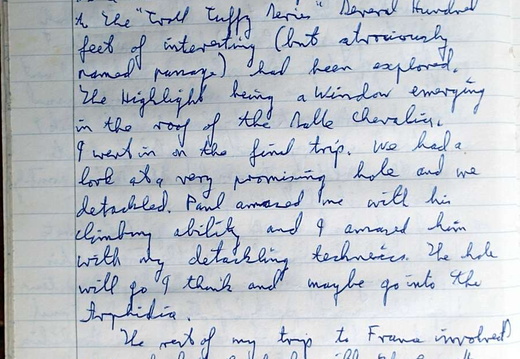 in the "Troll Tuffy Series" Several Hundred
feet of interesting (but atrociously
named passage) had been explored.
The Highlight being a Window emerging
in the roof of the Salle Chevalier.
I went in on the final trip. We had a
look at a very promising hole and we
detackled. Paul amazed me with his
climbing ability and I amazed him
with my detackling techniques. The hole
will go I think and maybe go into the

The rest of my trip to France involved